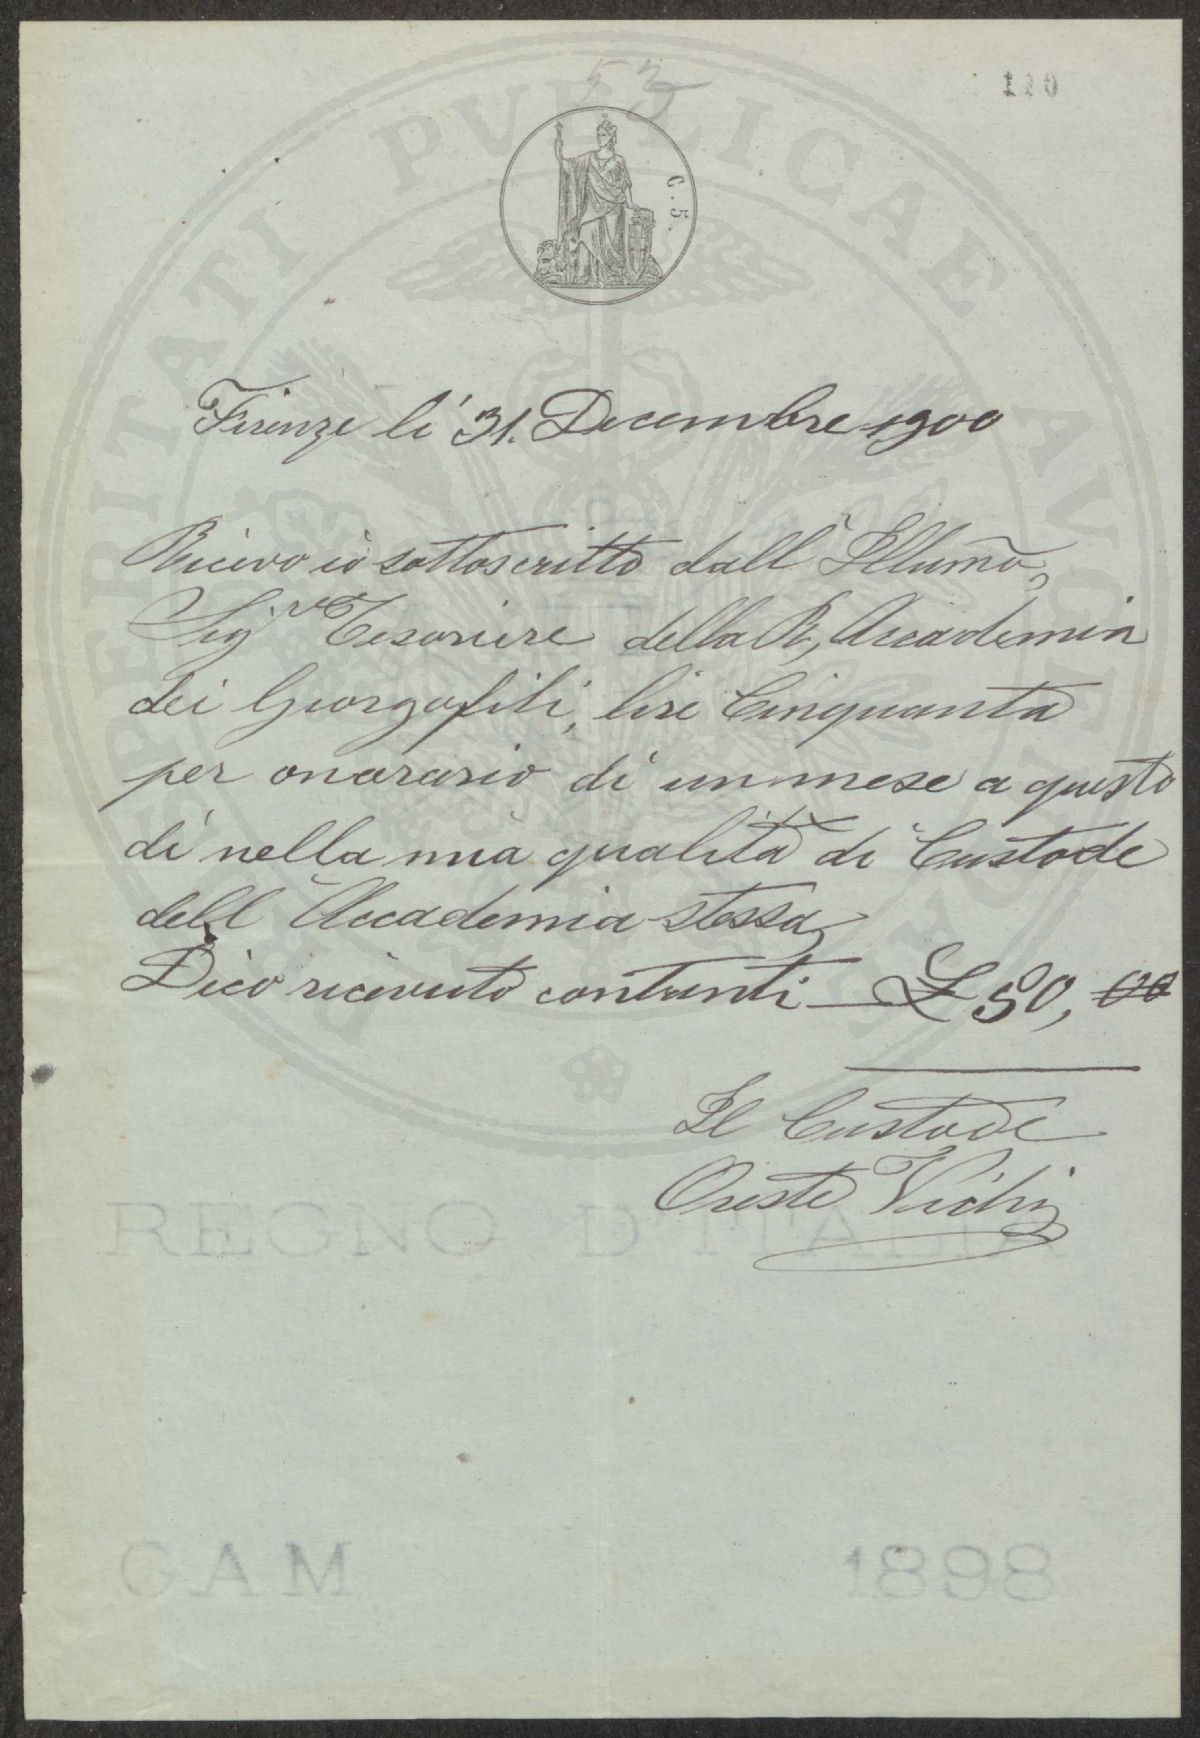 53
110
C. 5.
PROSPERITATI PVBLICAE AVGENDAE
Firenze li 31. Decembre 1900
Ricevo io sottoscritto dall' Illumo,
Sigre Tesoriere della R, Accademia
dei Georgofili, lire Cinquanta
per onorario di un mese a questo
dì nella mia qualità di Custode
dell' Accademia stessa,
Dico ricevuto contanti — £ 50, 00
Il Custode
Oreste Vichi
REGNO D'ITALIA
GAM 1898